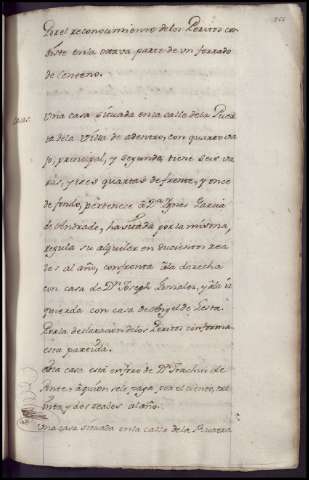 Por el reconocimiento de los Peritos con
siste en la octava parte de un ferrado
de Centeno.
Casas.
Una casa situada en la calle de la Puer
ta de la Villa de adentro, con quarto va
jo, principal, y segundo, tiene seis va
ras, y tres quartas de frente, y once
de fondo, pertenece a Dª. Ygnes Garcia
de Andrade, havitada por la misma,
regula su alquiler en ducientos rea
les al año, confronta a la derecha
con casa de Dn. Joseph Gonzalez, y a la iz
quierda con casa de Angel de Testa.
Por la declaracion de los Peritos conforma
esta partida.
Esta casa está en foro de Dn.
a quien se le paga por el ciento, tre
inta y dos reales al año.
Una casa situada en la calle de la Puerta